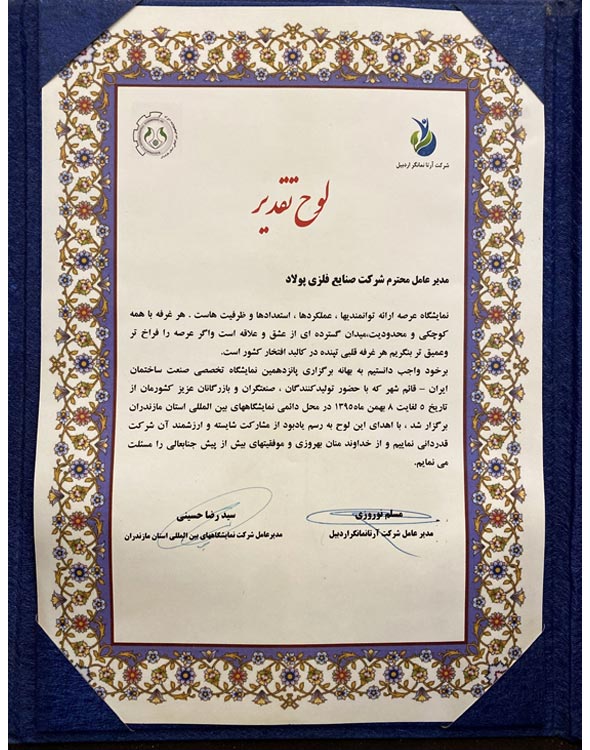 شرکت آرتا نمانگر اردبیل
لوح تقدیر
مدیر عامل محترم شرکت صنایع فلزی پولاد
نمایشگاه عرصه ارائه توانمندیها ، عملکردها ، استعدادها و ظرفیت هاست . هر غرفه با همه
کوچکی و محدودیت،میدان گسترده ای از عشق و علاقه است واگر عرصه را فراخ تر
وعمیق تر بنگریم هر غرفه قلبی تپنده در کالبد افتخار کشور است.
برخود واجب دانستیم به بهانه برگزاری پانزدهمین نمایشگاه تخصصی صنعت ساختمان
ایران - قائم شهر که با حضور تولیدکنندگان ، صنعتگران و بازرگانان عزیز کشورمان از
تاریخ ۵ لغایت ۸ بهمن ماه۱۳۹۵ در محل دائمی نمایشگاههای بین المللی استان مازندران
برگزار شد ، با اهدای این لوح به رسم یادبود از مشارکت شایسته و ارزشمند آن شرکت
قدردانی نماییم و از خداوند منان بهروزی و موفقیتهای بیش از پیش جنابعالی را مسئلت
می نمایم.
مسلم نوروزی
مدیر عامل شرکت آرتانمانگراردبیل
سید رضا حسینی
مدیرعامل شرکت نمایشگاههای بین المللی استان مازندران